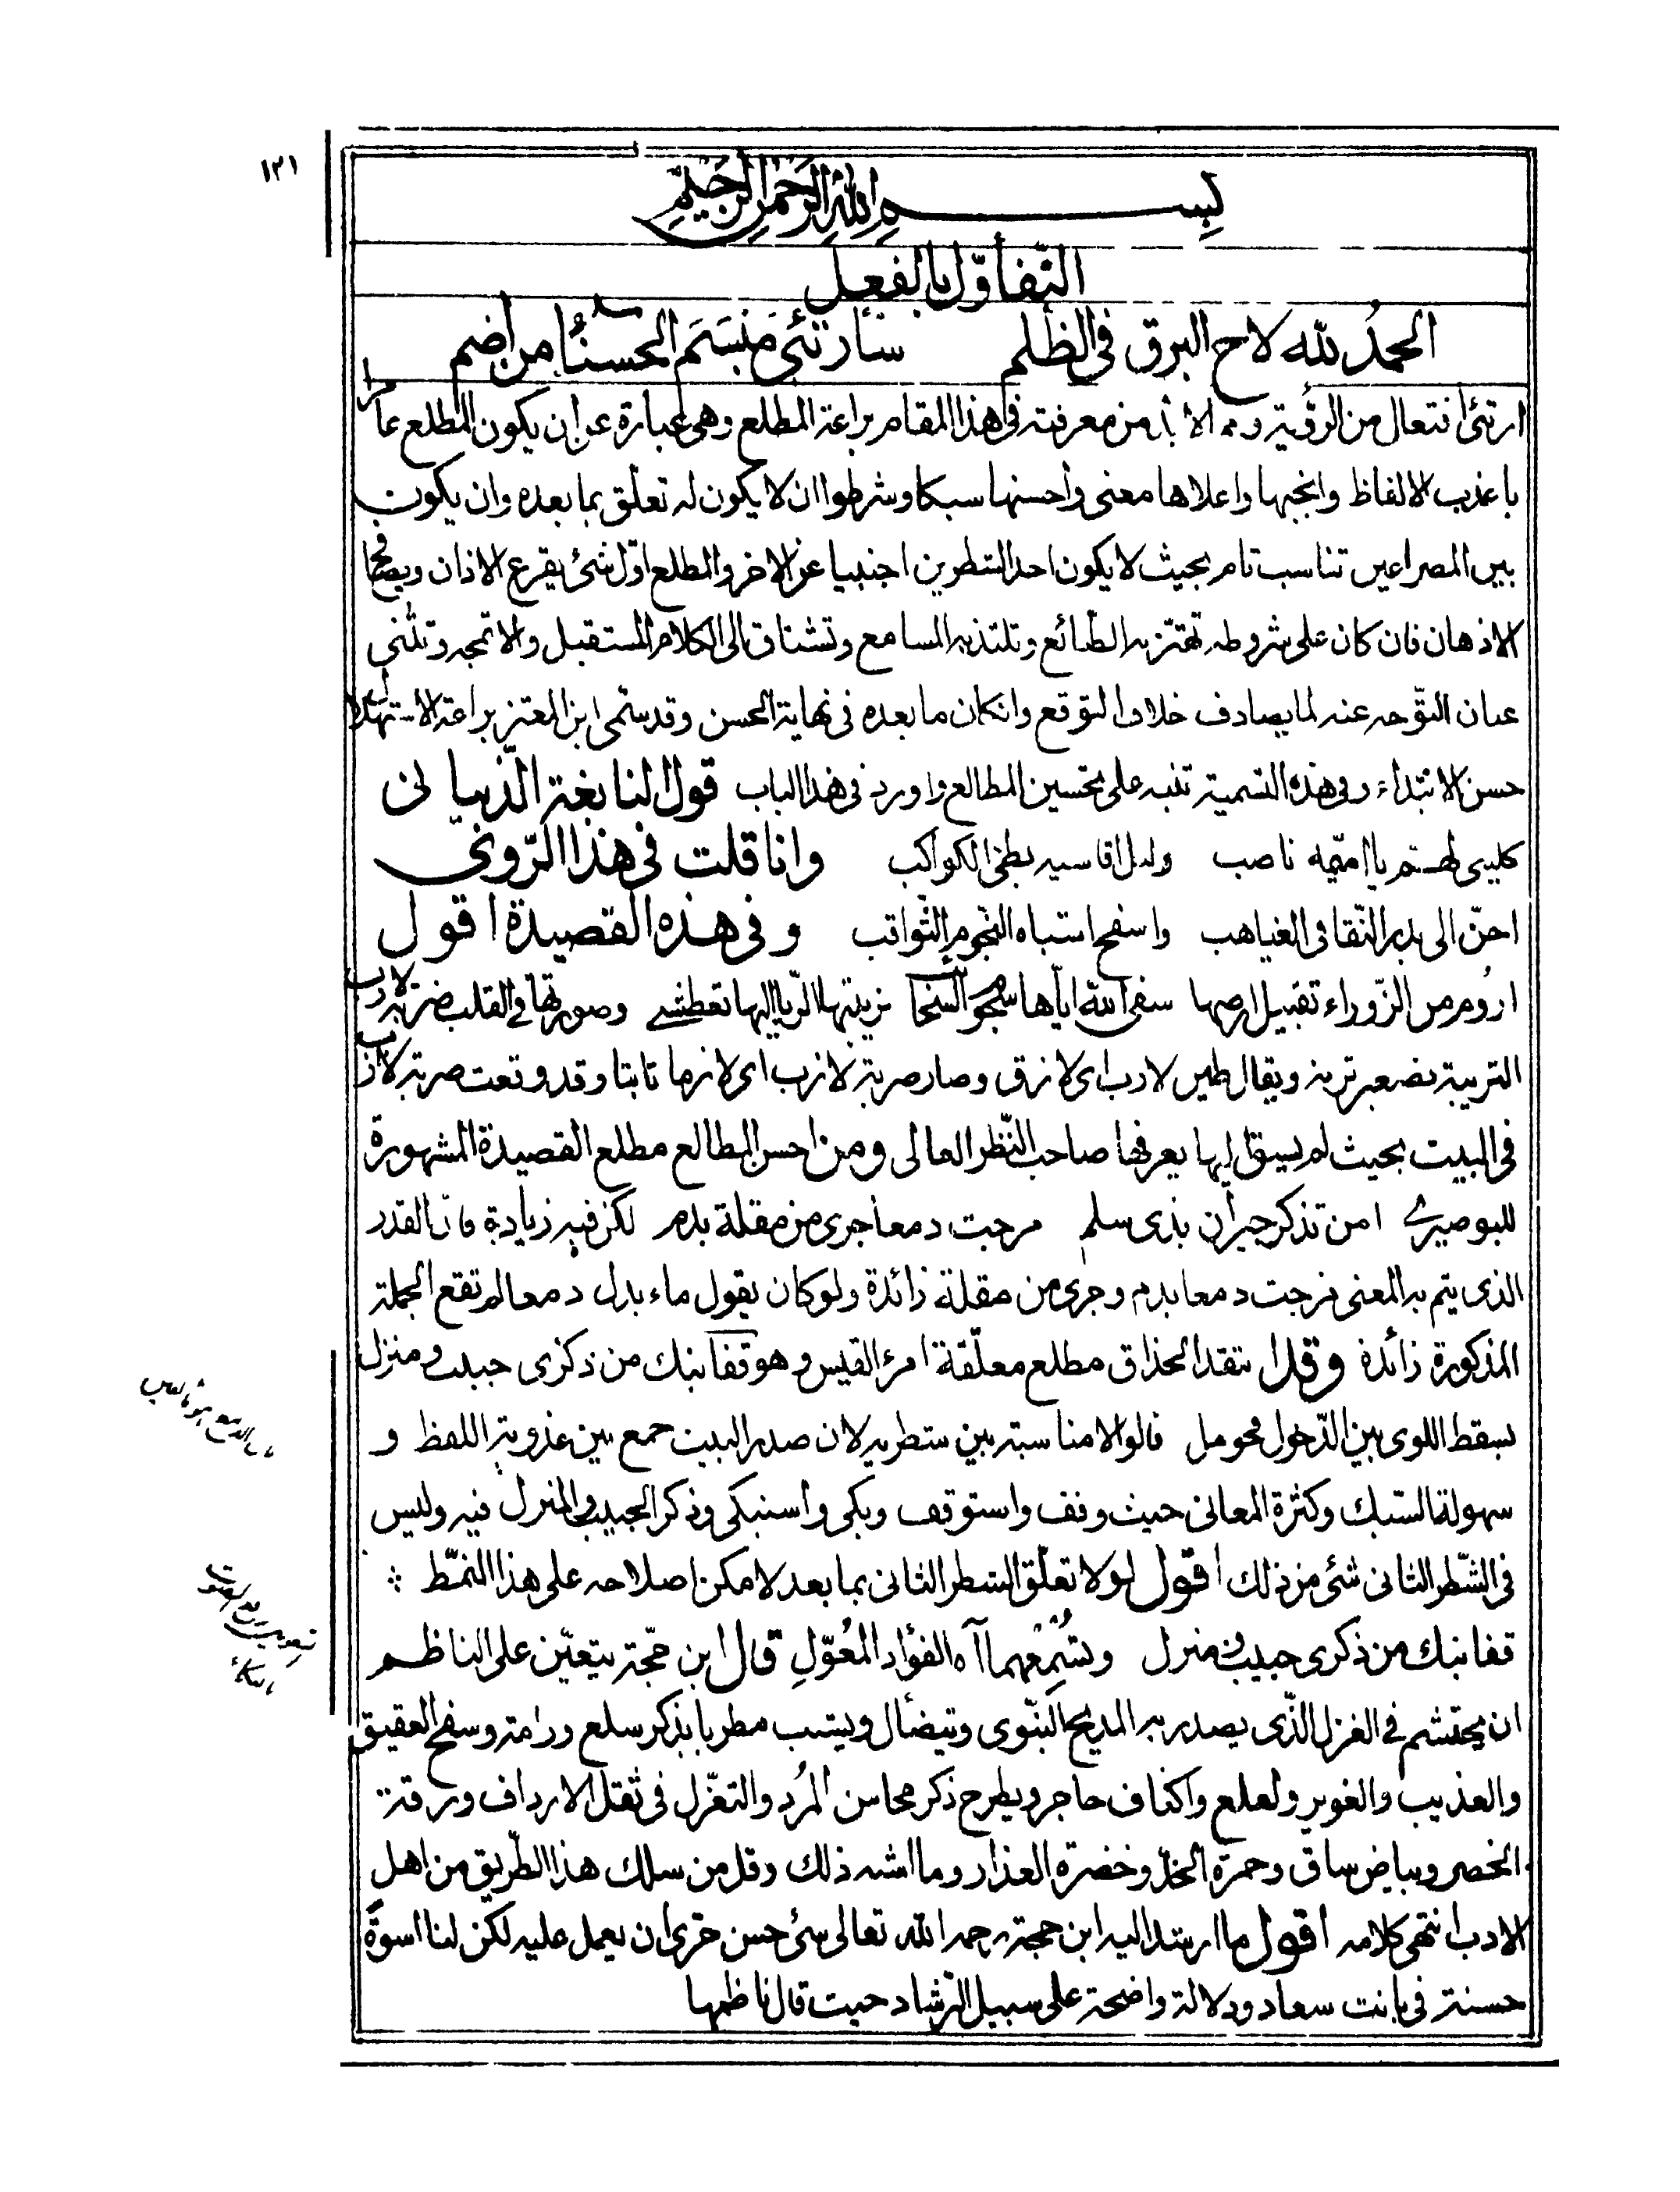 ١٢١
بسم الله الرحمن الرحيم
التّفاؤل بالفعل
الحمدُ لله لاح البرق في الظلم سأرتئي مَبسَمَ الحسناء من اضم
ارتئي افتعال من الرؤية ومما لا بد من معرفته في هذا المقام براعة المطلع وهي عبارة عن ان يكون المطلع عامرا
باعذب الالفاظ وانجبها واعلاها معنى واحسنها سبكا وشرطوا ان لا يكون له تعلق بما بعده وان يكون
بين المصراعين تناسب تام بحيث لا يكون احد الشطرين اجنبيا عن الاخر والمطلع اوّل شئ يقرع الاذان ويصافح
الاذهان فان كان على شروطه تهتزّ به الطبائع وتلتذ به المسامع وتشتاق الى الكلام المستقبل والا تمجه وتثني
عنان التوّجه عنه لما يصادف خلاف التوقع وانكان ما بعده في نهاية الحسن وقد سمّى ابن المعتز براعة الاستهلال
حسن الابتداء وفي هذه التسمية تنبه على تحسين المطالع واورد في هذا الباب قول النابغة الذّبياني
كليني لهم يا اميّمة ناصب وليل اقاسيه بطئ الكواكب وانا قلت في هذا الرّوي
احنّ الى بدر النّقا في الغياهب واسفح اشباه النجوم الثّواقب وفي هذه القصيدة اقول
ارُوم من الزّوراء تقبيل ارضها سقى الله اياها سجو السحائب تربيتها الريا اليها تعطشي وصورتها في القلب ضربة لازب
التريبة تصغير تربة ويقال طين لازب اي لازق وصار ضربة لازب اي لازما ثابتا وقد وقعت ضربة لازب
في البيت بحيث لم يسبق اليها يعرفها صاحب النّظر العالي ومن احسن المطالع مطلع القصيدة المشهورة
للبوصيري امن تذكر جيران بذي سلم مزجت دمعا جرى من مقلة بدم لكن فيه زيادة فان القدر
الذي يتم به المعنى مزجت دمعا بدم وجرى من مقلة زائدة ولو كان يقول ماء بدل دمعا لم تقع الجملة
المذكورة زائدة وقد انتقد الحذاق مطلع معلّقة امرء القيس وهو قفا نبك من ذكرى حبيب ومنزل
بسقط اللوى بين الدّخول فحومل قالوا لا مناسبة بين شطريه لان صدر البيت جمع بين عذوبة اللفظ و
سهولة السّبك وكثرة المعاني حيث وقف واستوقف وبكى واستبكى وذكر الحبيب والمنزل فيه وليس
في الشّطر الثاني شئ من ذلك اقول لولا تعلّق الشطر الثاني بما بعد لامكن اصلاحه على هذا النمّط
قفا نبك من ذكرى حبيب ومنزل ونُسْمِعهما آه الفؤاد المُعوّلِ قال ابن حجّة يتعيّن على الناظم
ان يحتشم في الغزل الذّي يصدر به المديح النبّوي ويتضأل ويتسبب مطربا بذكر سلع ورامة وسفح العقيق
والعذيب والغوير ولعلع واكناف حاجر ويطرح ذكر محاسن المُرد والتغزّل في ثقل الارداف ورقة
الخصر وبياض ساق وحمرة الخدّ وخضرة العذار وما اشبه ذلك وقل من سلك هذا الطّريق من اهل
الادب انتهى كلامه اقول ما ارشد اليه ابن حجة رحمه الله تعالى شئ حسن حري ان يعمل عليه لكن لنا اسوة
حسنة في بانت سعاد ودلالة واضحة على سبيل الرّشاد حيث قال ناظمها